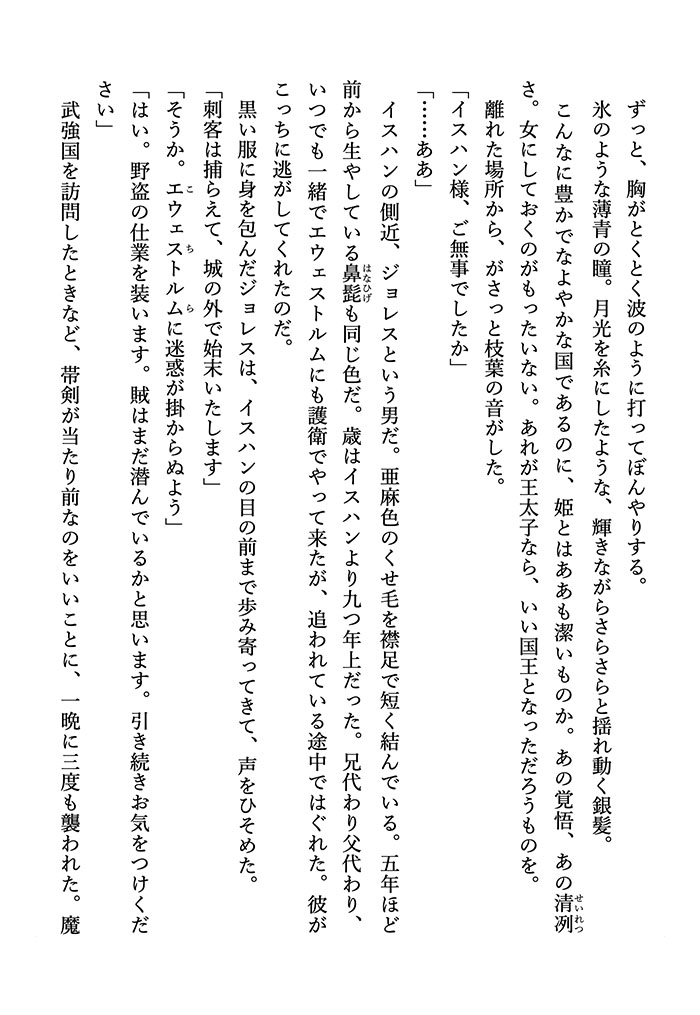 ずっと、胸がとくとく波のように打ってぼんやりする。
氷のような薄青の瞳。月光を糸にしたような、輝きながらさらさらと揺れ動く銀髪。
こんなに豊かでなよやかな国であるのに、姫とはああも潔いものか。あの覚悟、あの清冽
さ。女にしておくのがもったいない。あれが王太子なら、いい国王となっただろうものを。
離れた場所から、がさっと枝葉の音がした。
「イスハン様、ご無事でしたか」
「……ああ」
イスハンの側近、ジョレスという男だ。亜麻色のくせ毛を襟足で短く結んでいる。五年ほど
前から生やしている鼻髭も同じ色だ。歳はイスハンより九つ年上だった。兄代わり父代わり、
いつでも一緒でエウェストルムにも護衛でやって来たが、追われている途中ではぐれた。彼が
こっちに逃がしてくれたのだ。
黒い服に身を包んだジョレスは、イスハンの目の前まで歩み寄ってきて、声をひそめた。
「刺客は捕らえて、城の外で始末いたします」
「そうか。エウェストルムに迷惑が掛からぬよう」
「はい。野盗の仕業を装います。賊はまだ潜んでいるかと思います。引き続きお気をつけくだ
さい」
武強国を訪問したときなど、帯剣が当たり前なのをいいことに、一晩に三度も襲われた。魔